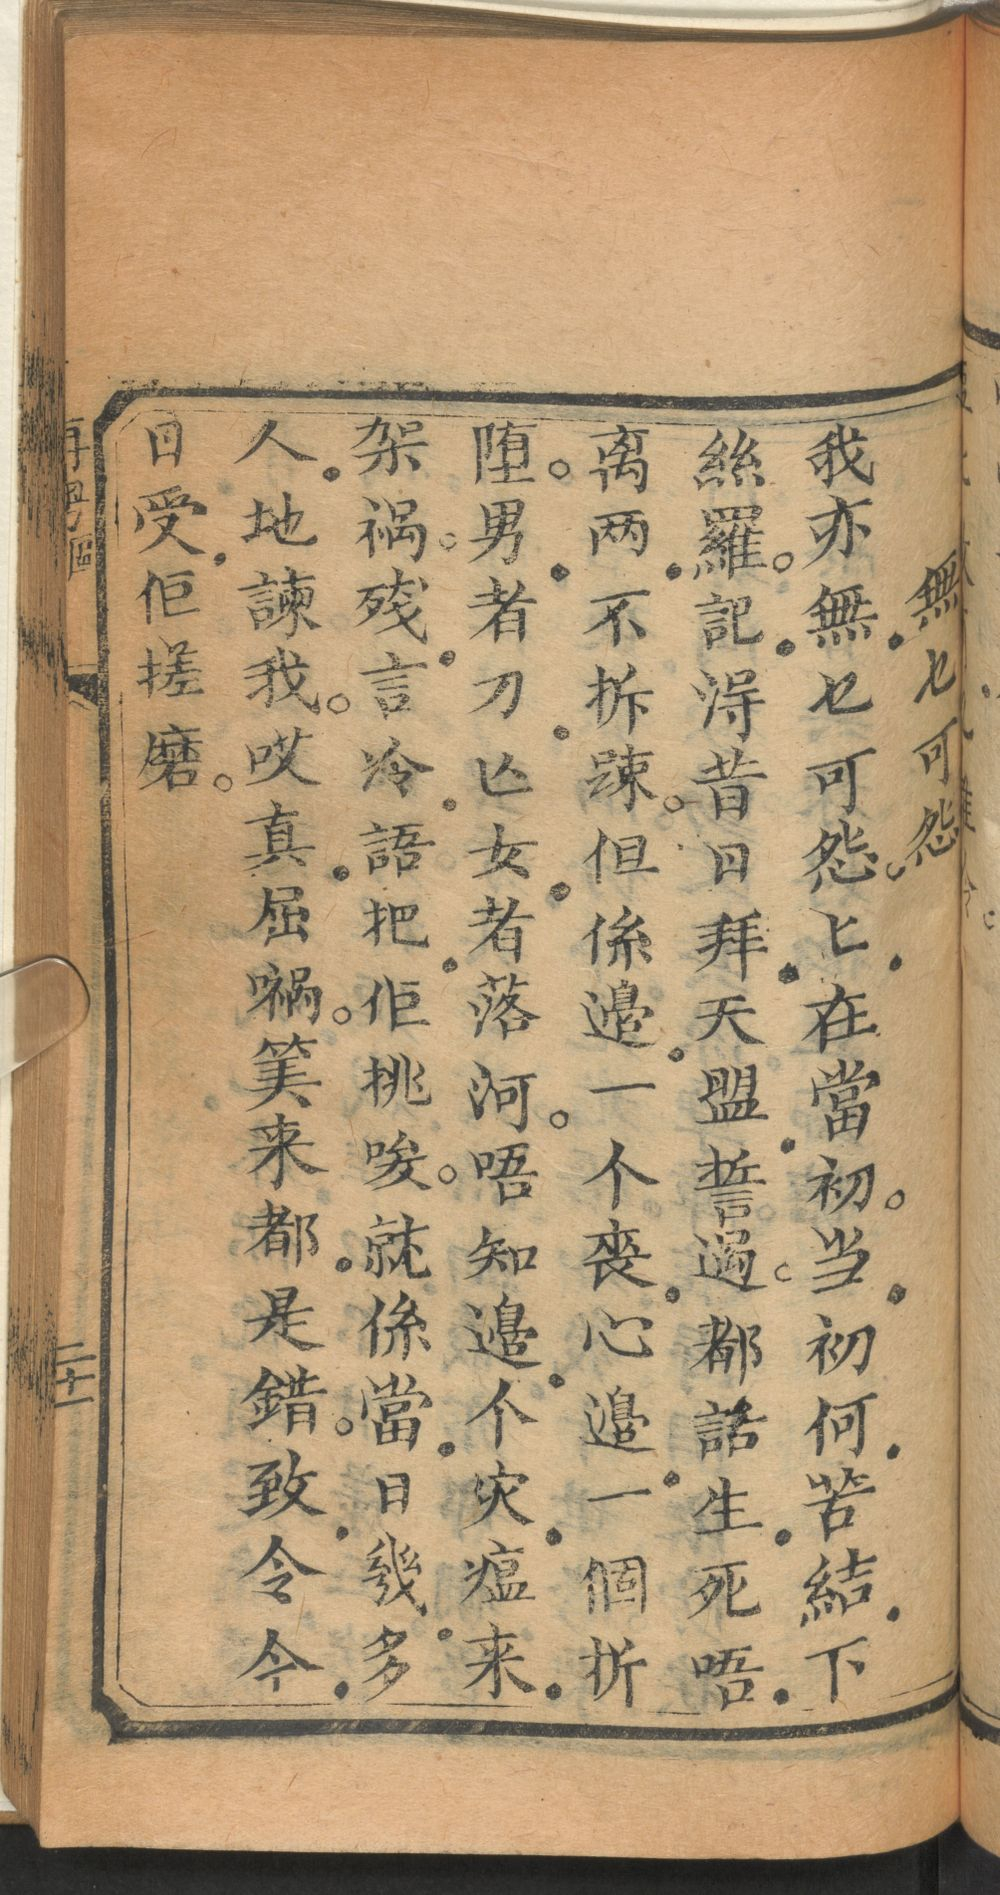 無乜可怨
我亦無乜可怨。匕在當初。当初何苦結下
絲羅。記淂昔日拜天盟誓過。都話生死唔
离两不拆踈。但係邉一个丧心邉一個折
堕。男者刀亡女者落河。唔知邉个灾瘟来
架祸。残言冷語把佢挑唆。就係當日幾多
人地諫我。哎真屈啊。筭来都是錯。致令今
日受佢搓磨。
再粤謳
二十一